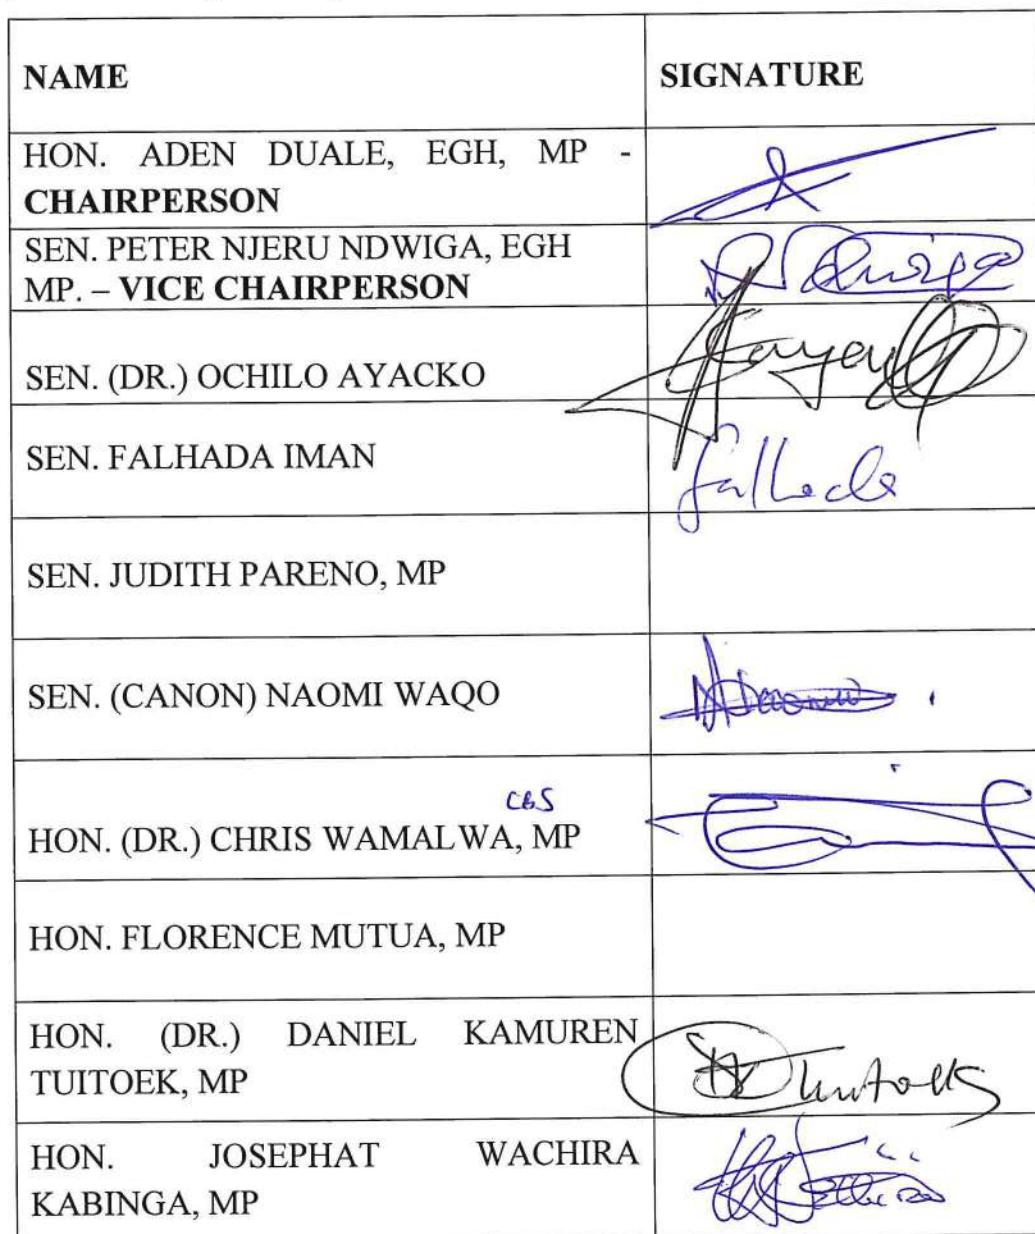 NAME SIGNATURE
HON. ADEN DUALE, EGH, MP -
CHAIRPERSON
SEN. PETER NJERU NDWIGA, EGH
MP. – VICE CHAIRPERSON
SEN. (DR.) OCHILO AYACKO
SEN. FALHADA IMAN
falhada
SEN. JUDITH PARENO, MP
SEN. (CANON) NAOMI WAQO
CBS
HON. (DR.) CHRIS WAMALWA, MP
HON. FLORENCE MUTUA, MP
HON. (DR.) DANIEL KAMUREN
TUITOEK, MP
HON. JOSEPHAT WACHIRA
KABINGA, MP